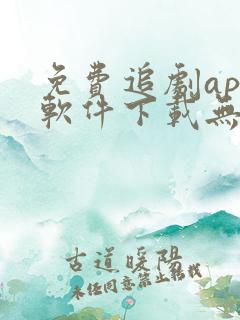 免費追劇ap
軟件下載無
古道暖陽
未經同意禁止轉載